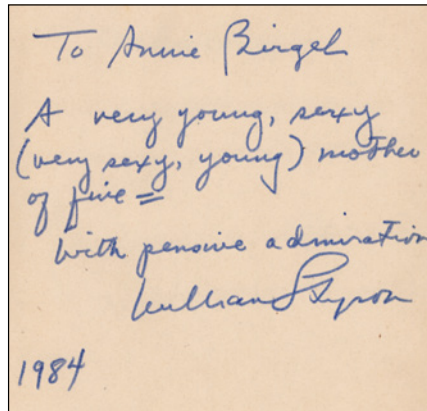 To Annie Birgel
A very young, sexy
(very sexy, young) mother
of five =
With pensive admiration
William Styron
1984